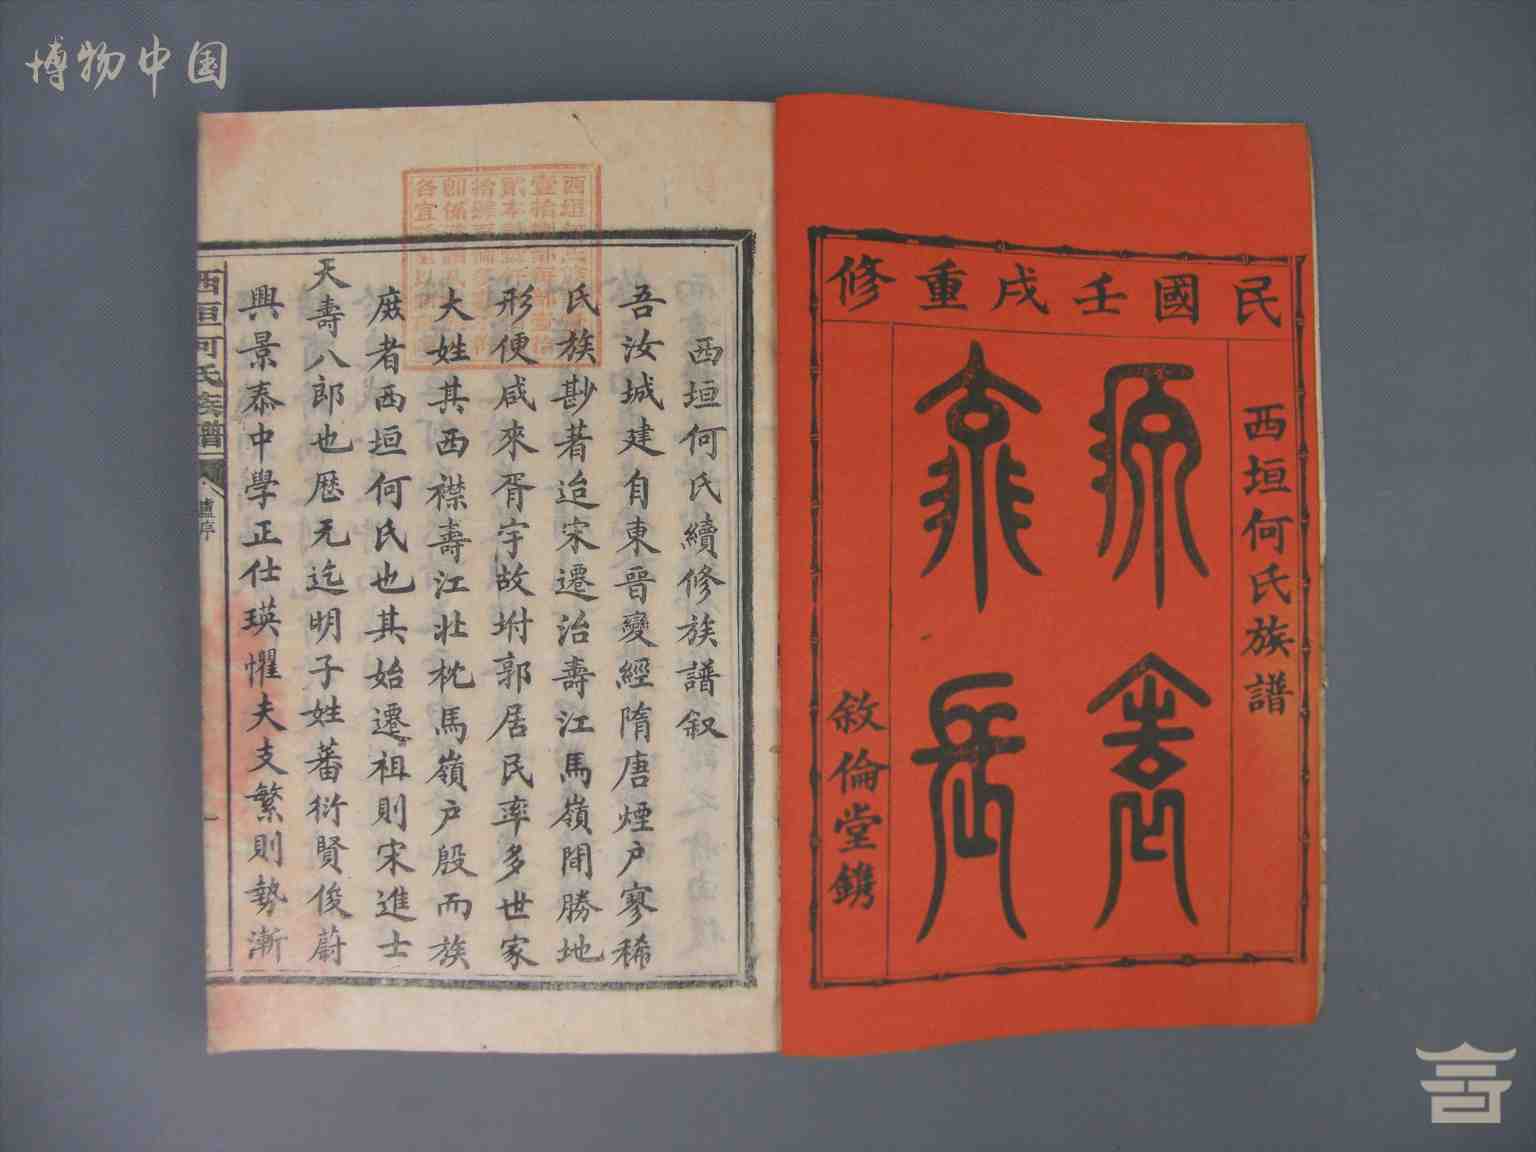 博物中国
民國壬戌重修
西垣何氏族譜
源遠
流長
敘倫堂鐫
西垣何氏續修族譜叙
吾汝城建自東晉變經隋唐煙户寥稀
氏族尠著迨宋遷治壽江馬嶺間勝地
形便咸來胥宇故坿郭居民率多世家
大姓其西襟壽江北枕馬嶺户殷而族
庶者西垣何氏也其始遷祖則宋進士
天壽八郎也歷元迄明子姓蕃衍賢俊蔚
興景泰中學正仕瑛懼夫支繁則勢漸
西垣何氏族譜